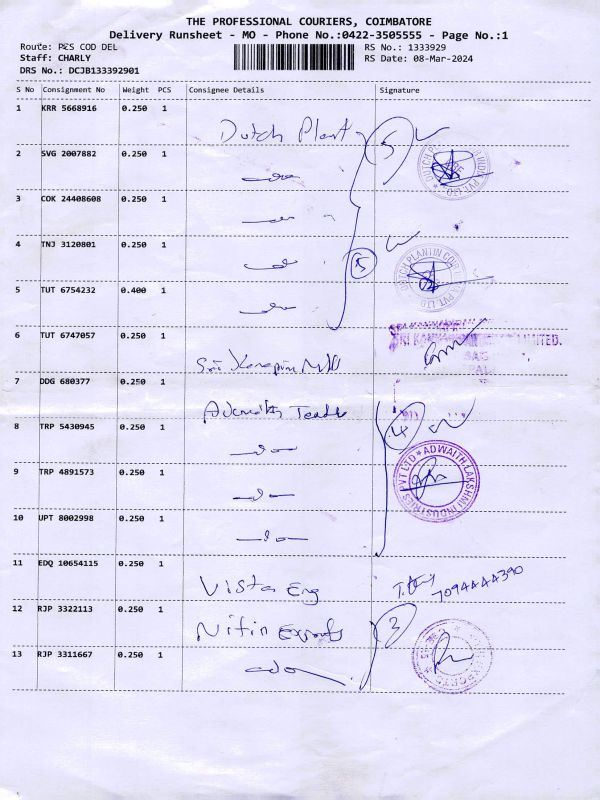 THE PROFESSIONAL COURIERS, COIMBATORE
Delivery Runsheet - MO - Phone No.:0422-3505555 - Page No.:1
Route: PCS COD DEL RS No.: 1333929
Staff: CHARLY RS Date: 08-Mar-2024
DRS No.: DCJB133392901
S No Consignment No Weight PCS Consignee Details Signature
1 KRR 5668916 0.250 1 Dutch Plant 5
2 SVG 2007882 0.250 1
3 COK 24408608 0.250 1
4 TNJ 3120801 0.250 1 5
DUTCH PLANTIN COIR INDIA PVT LTD
5 TUT 6754232 0.400 1
6 TUT 6747057 0.250 1 Sri
7 DDG 680377 0.250 1
8 TRP 5430945 0.250 1 4
ADWAITH LAKSHMI INDUSTRIES PVT LTD
9 TRP 4891573 0.250 1
10 UPT 8002998 0.250 1
11 EDQ 10654115 0.250 1 Vista Eng 7094444390
12 RJP 3322113 0.250 1 Nitin Exports
13 RJP 3311667 0.250 1